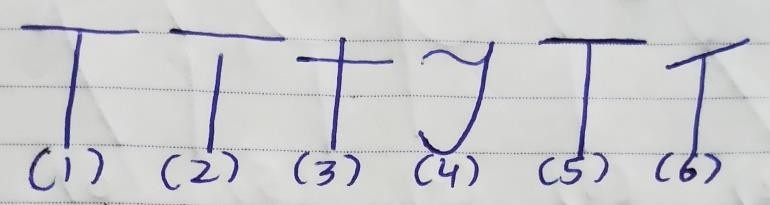 T T T Y T T
(1) (2) (3) (4) (5) (6)